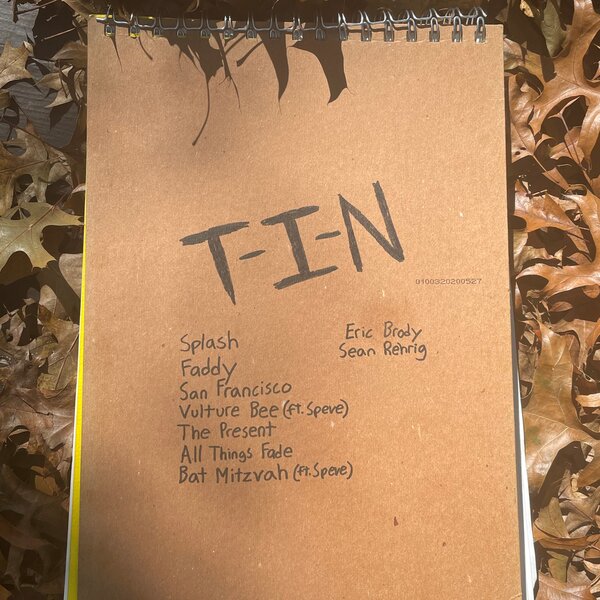 T-I-N
0100320200527
Splash
Faddy
San Francisco
Vulture Bee (ft. Speve)
The Present
All Things Fade
Bat Mitzvah (ft. Speve)
Eric Brody
Sean Rehrig